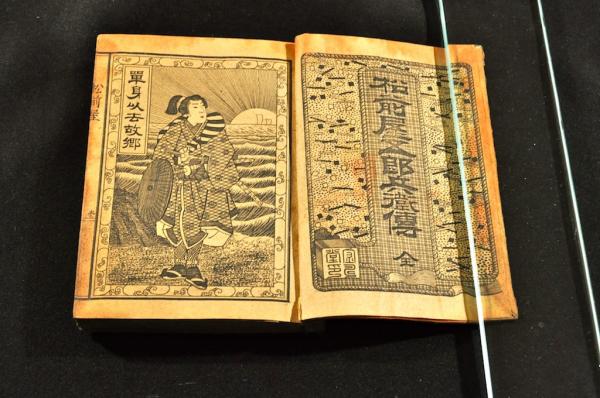 松前屋五郎兵衛傳 全
單身以去故鄉
松前屋